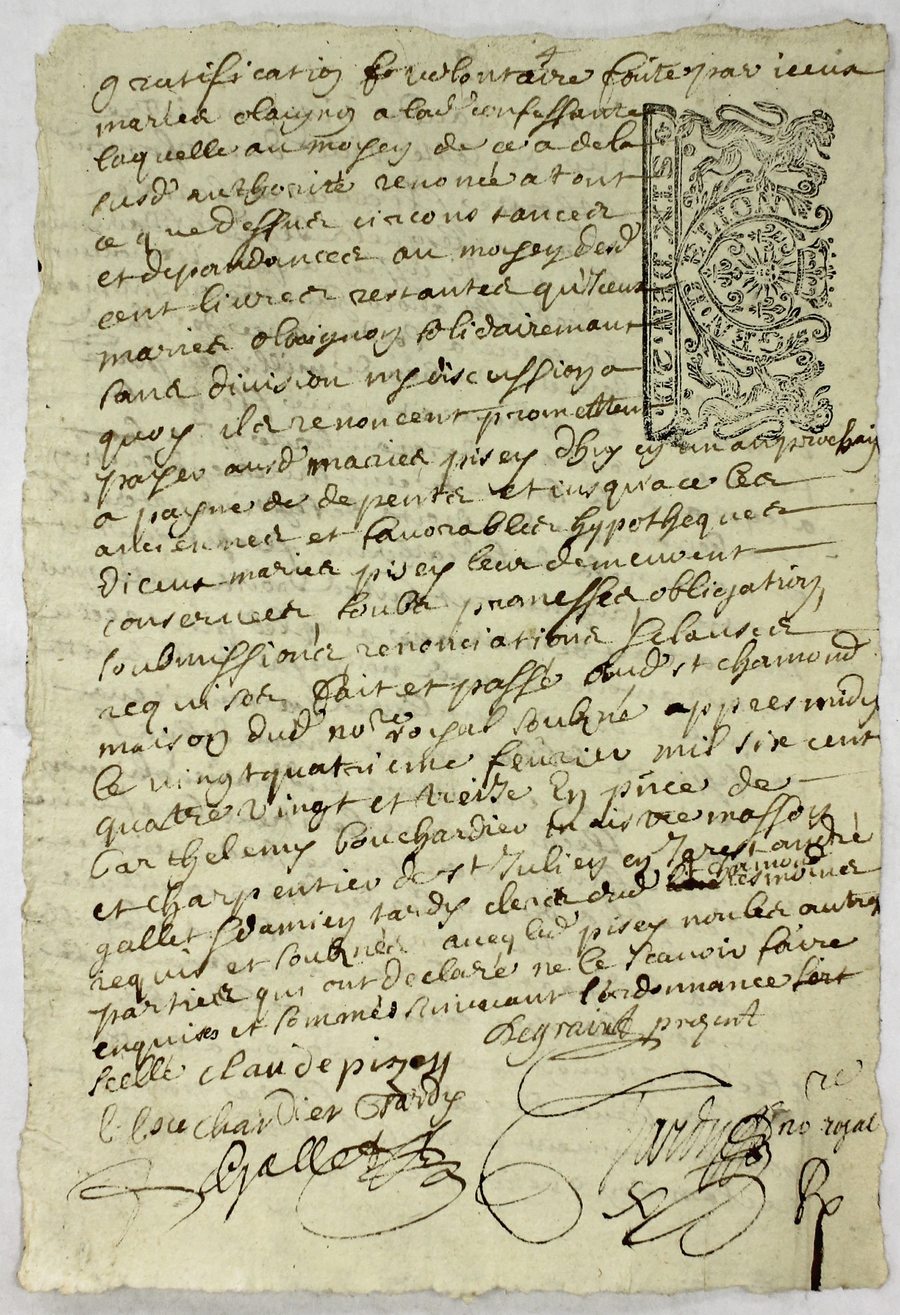 gratification & volontaire faite par iceux
mariés chaignon a lad confessante
laquelle au moyen de ce a de la
susd authorité renoncé a tout
ce que dessus circonstances
et dependances au moyen desd
cent livres restantes qu'iceux
mariés chaignon solidairemant
sans division ny discussion a
quoy ils renoncent promettent
payer ausd mariés pisey d'huy en un an prochain
a payne de depents et jusqu'a ce les
anciennes et favorables hypotheques
diceux mariés pisey leur demeurent
conservées, soubs promesses, obligation,
soubmissions, renonciations & clauses
requises, fait et passé aud st chamond
maison dud nore royal soubné appres midy
le vingt quatrieme fevrier mil six cent
quatre vingt et treize En pnce de
barthelemy bouchardier maistre masson
et charpentier de st Julien en Jarest andré
gallet & damien tardy clercs dud st chamond tesmoins
requis et soubnés avecq led pisey non les autres
parties qui ont declaré ne le scavoir faire
enquises et sommés suivant l'ordonnance soit
scellé claude pizey
Degraint present
b bouchardier Tardy
Gallet
Tardy nore royal
DIC NERIXIS
GEN DE RION